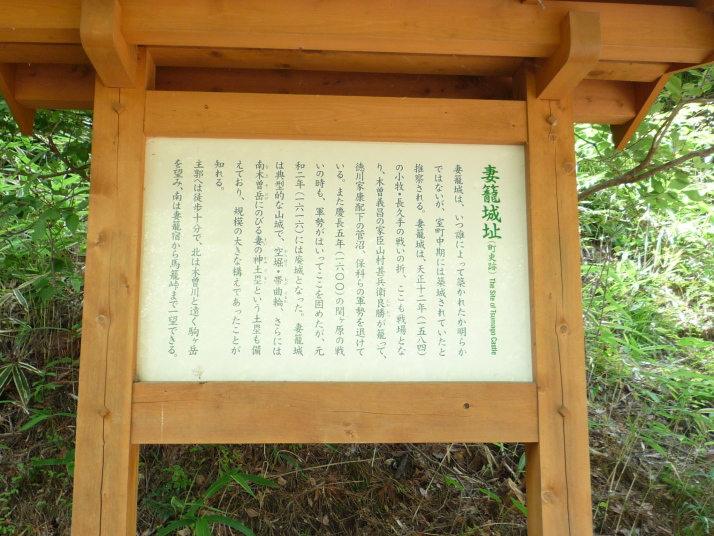 妻籠城址（町史跡） The Site of Tsumago Castle
妻籠城は、いつ誰によって築かれたか明らか
ではないが、室町中期には築城されていたと
推察される。妻籠城は、天正十二年（一五八四）
の小牧・長久手の戦いの折、ここも戦場とな
り、木曽義昌の家臣山村甚兵衛良勝が籠って、
徳川家康配下の菅沼、保科らの軍勢を退けて
いる。また慶長五年（一六〇〇）の関ヶ原の戦
いの時も、軍勢がはいってここを固めたが、元
和二年（一六一六）には廃城となった。妻籠城
は典型的な山城で、空堀・帯曲輪、さらには
南木曽岳にのびる妻の神土塁という土塁も備
えており、規模の大きな構えであったことが
知れる。
主郭へは徒歩十分で、北は木曽川と遠く駒ヶ岳
を望み、南は妻籠宿から馬籠峠まで一望できる。